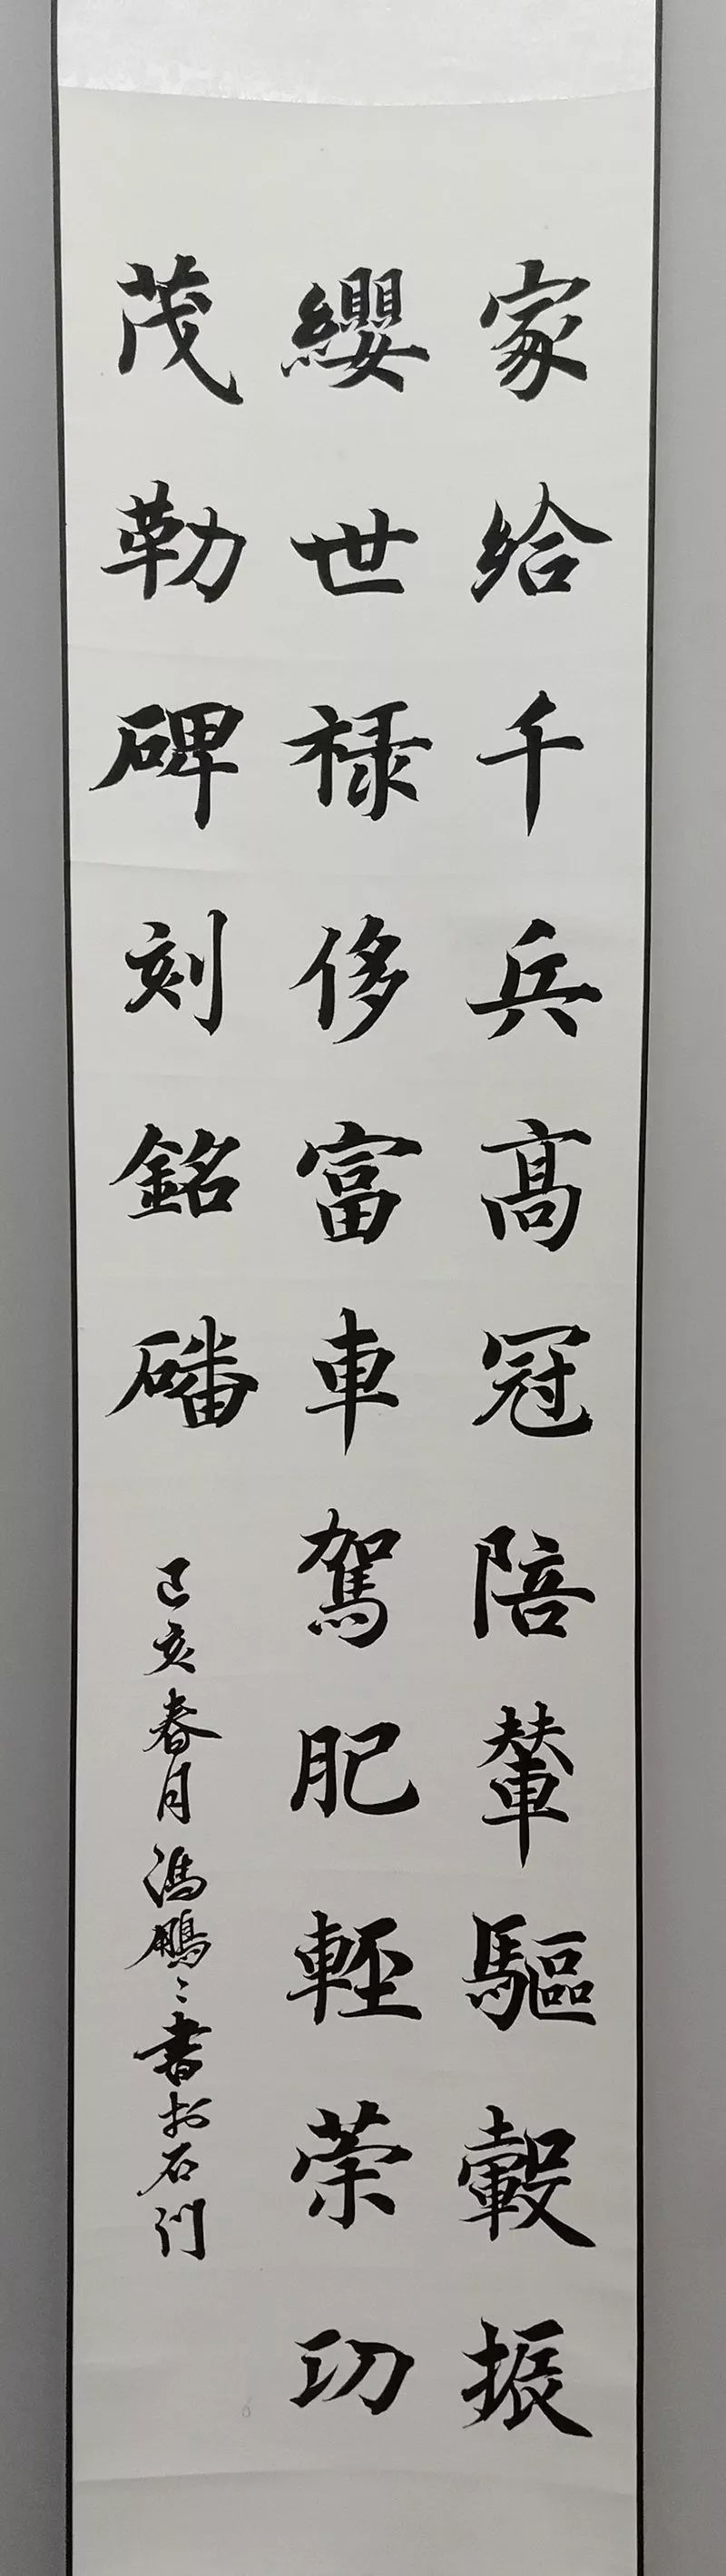 家給千兵高冠陪輦驅轂振
纓世禄侈富車駕肥輕荣功
茂勒碑刻銘磻
己亥春月馮鵬〻書於石门